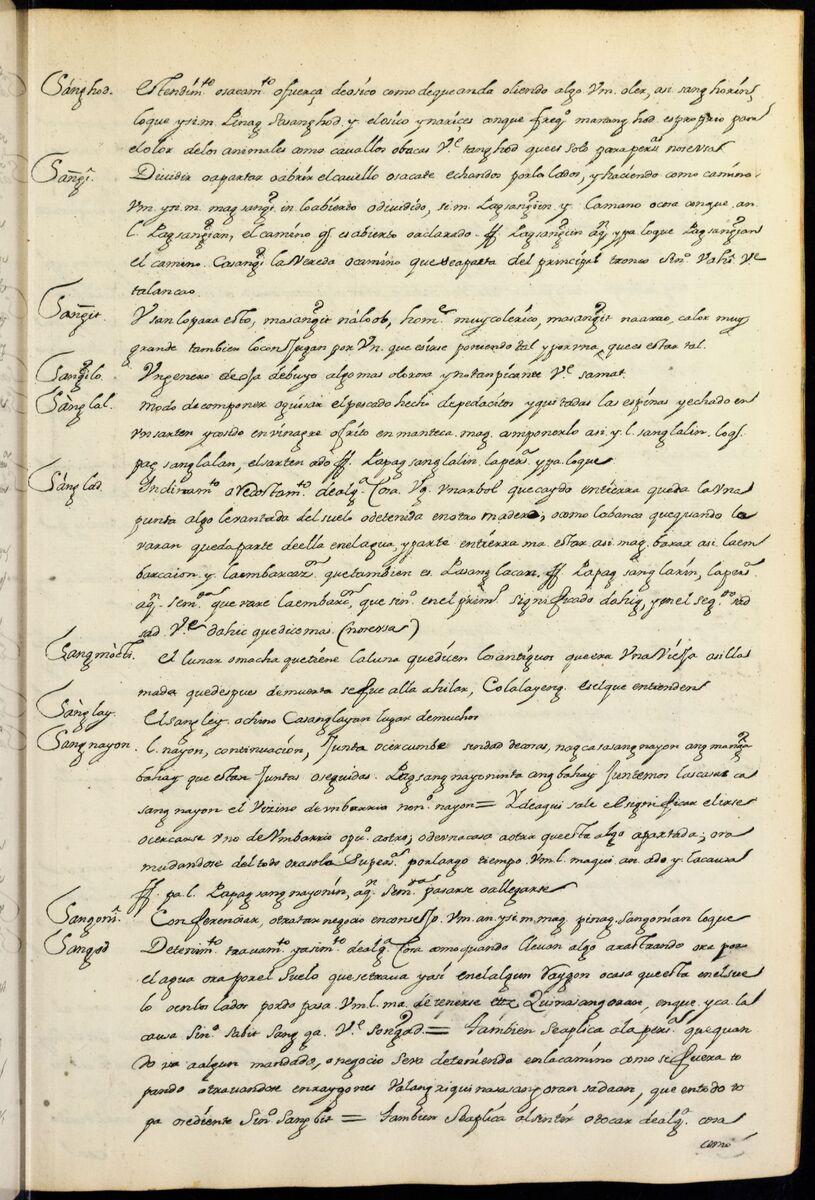 Sánghod. Estendim.to osacam.to ofuerça deosico como dequeanda oliendo algo Vm. oler, asi. sanghorin,
loque ysi.m. Pinag Sasanghod, y elosico ynarices conque freq.o manang hod. espropio para
elolor delos animales como cavallos obacas V.e tanghod quees solo para pers.a noreusa
Sangi. Dividir oapartar oabrir elcavello osacate echandos porlos lados, y haciendo como camino.
Vm. ysi.m. magsangi. in. loabierto odividido, si.m. Pagsangiin. y. Lamano ocosa conque. an.
l. Pagsangian, el camino q esabierto oaclarado. ff. Pagsangiin aq. ypa loque Pagsangian
el camino. Casangi la Vereda ocamino que seaparta del principal tronco Sin.o Vahi. V.e
talancao.
Sangit Vsanlopara esto, masangit náloob, hom.e muycolerico, masangit naarao, calor muy
grande tambien loconjugan por Vn. que esirse poniendo tal y por ma, quees estar tal.
Sangilo. Vngenero de oja debuyo algo mas olorosa ynotanpicante V.e samat.
Sànglal. Modo decomponer oguisar elpescado hecho depedacitos yquitadas las espinas yechado en
vnsarten ycosido envinagre ofrito en manteca. mag. componerlo asi. y. l. sanglalin. loq.
pag sanglalan, elsarten ado ff. Papag sanglalin, lapers.a ypa.loque
Sánglad. Inclinam.to orecostam.to dealg.a Cosa. Vg. vnarbol que caydo entierra queda la vna
punta algo levantada del suelo odetenida enotro madero, ocomo labanca quequando la
varan quedaparte deella enelagua, yparte entierra ma. estar asi. mag. barar asi. laem
barcaion. y. laembarcaz.on quetambien es. Pasanglacan. ff. Papag sanglarin, lapers.a
aq. sem.ra que vare laembarc.on, que sin.o enel prim.o significado dahig, y enel seg.do sad
sad. V.e dahic quedicemas. (noreusa)
Sangmòcti. El lunar omacha quetiene laluna quedicen losantiguos queera Vna Vieja asillas
mada quedespues demuerta sefue alla ahilar, Colalayeng. eselque entienden
Sànglay. Elsangley. ochino Casanglayan lugar demuchos
Sangnayon. l. nayon, continuacion, Junta ocercumbe sindad decosas, nagcasasangnayon ang manga
bahay que estan Juntas oseguidas. Pagsangnayoninta angbahay Juntemos lascasas ca
sangnayon el Vezino devnbarrio non.o nayon = Y deaqui sale elsignificar elirse
ocercanse vno de Vmbarrio opu.o aotro; odevnacasa aotra queesta algo apartada; ora
mudandose deltodo orasola Supers.a porlargo tiempo. Vm.l. maqui. an. ado y. lacausa
ff. pa l. Papag sangnayonin, aq. sem.ra pasarse oallegarse
Sangoni. Conferenciar, otratar negocio enconsejo. Vm. an. ysi.m. mag. pinag. Sangonian loque
Sangod Detenim.to travam.to yasim.to dealg.a Cosa comoquando llevan algo arastrando ora por
elagua ora porel suelo quesetrava yasi enelalgun raygon ocasa queesta enelsue
lo oenlos lados pordo pasa. Vm.l. ma. detenerse Quinasangoran, enque. y ca. la
causa Sin.o sabit Sang qa. V.e Songad. = Tambien Seaplica ála pers.a quequan
do va aalgun mandado, onegocio Seva deteniendo enlacamino como sefuera to
pando otravandose enraygones Valang xiquinasasangoran sadaan, que entodo to
pa oediente Sin.o Sangbit = Tambien Seaplica alsentir otocar dealg.a cosa
como